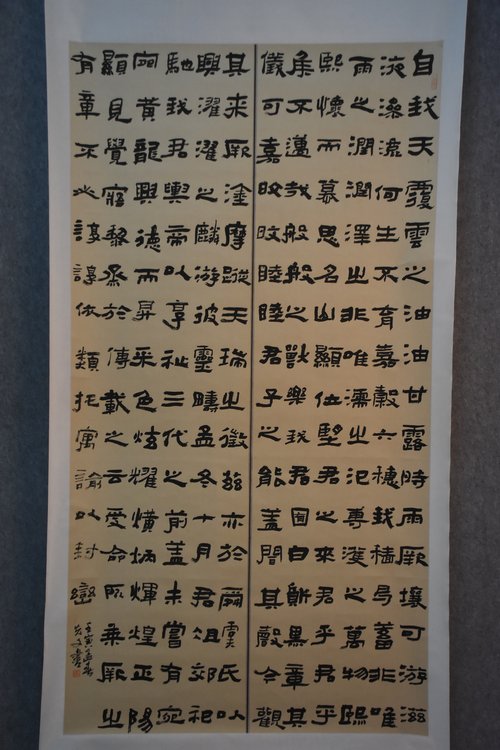 自我天覆雲之油油甘露時雨厥壤可游滋
液滲流何生不育嘉穀六穗我穡曷蓄非唯
雨之潤潤澤之非唯濡之氾尃濩之萬物熙
熙懷而慕思名山顯位望君之來君乎君乎
侯不邁哉般般之獸樂我君囿白質黑章其
儀可嘉旼旼睦睦君子之能蓋聞其聲今觀
其來厥塗靡蹤天瑞之徵茲亦於爾虞氏以
興濯濯之麟游彼靈畤孟冬十月君徂郊祀
馳我君輿帝以享祉三代之前蓋未嘗有宛
宛黃龍興德而昇采色炫耀熿炳煇煌正陽
顯見覺寤黎烝於傳載之云受命所乘厥之
有章不必諄諄依類托寓諭以封巒
壬寅孟春
書